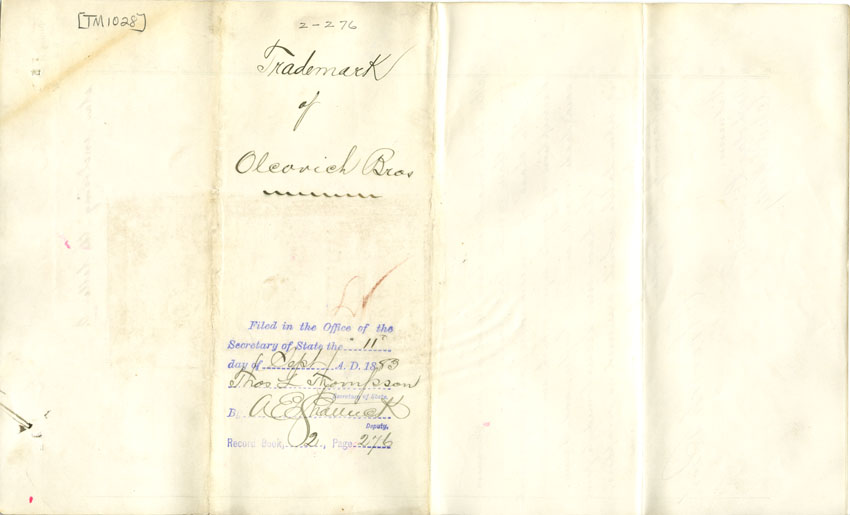 [TM1028]
2-276
Trademark
of
Olcovich Bros
Filed in the Office of the
Secretary of State the 11"
day of Sept A. D. 1883
Thos L Thompson
Secretary of State.
By A E
Deputy.
Record Book, 2, Page 276